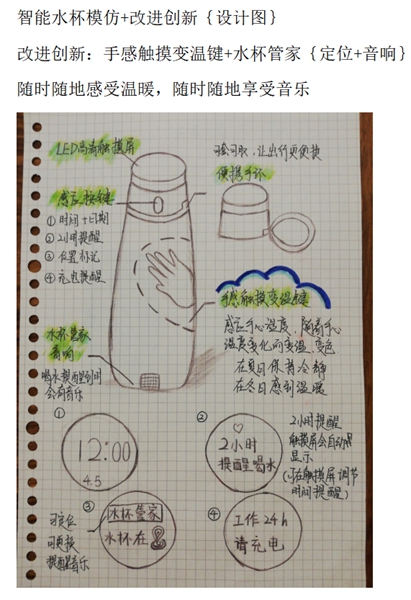 智能水杯模仿+改进创新｛设计图｝
改进创新：手感触摸变温键+水杯管家｛定位+音响｝
随时随地感受温暖，随时随地享受音乐
LED高清触摸屏
感应按键
①时间+日期
②2小时提醒
③位置标记
④充电提醒
可套可取，让出行更便捷
便携手环
手感触摸变温键
感应手心温度，随着手心
温度变化而变温、变色
在夏日保持冷静
在冬日感到温暖
水杯管家
音响
喝水提醒到时
会有音乐
①
12:00
4.5
②
2小时
提醒喝水
2小时提醒
触摸屏会自动
显示
(可在触摸屏调节
时间提醒)
③
水杯管家
水杯在
可定位
可更换
提醒音乐
④
工作24h
请充电